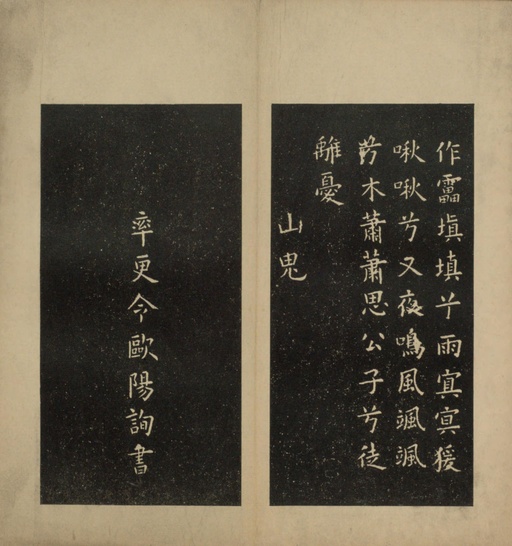 作靁填填兮雨冥冥猨
啾啾兮又夜鳴風颯颯
兮木蕭蕭思公子兮徒
離憂
山鬼
率更令歐陽詢書